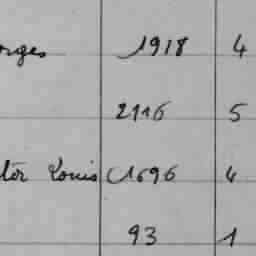 orges 1918 4
2116 5
ctor Louis 1696 4
93 1